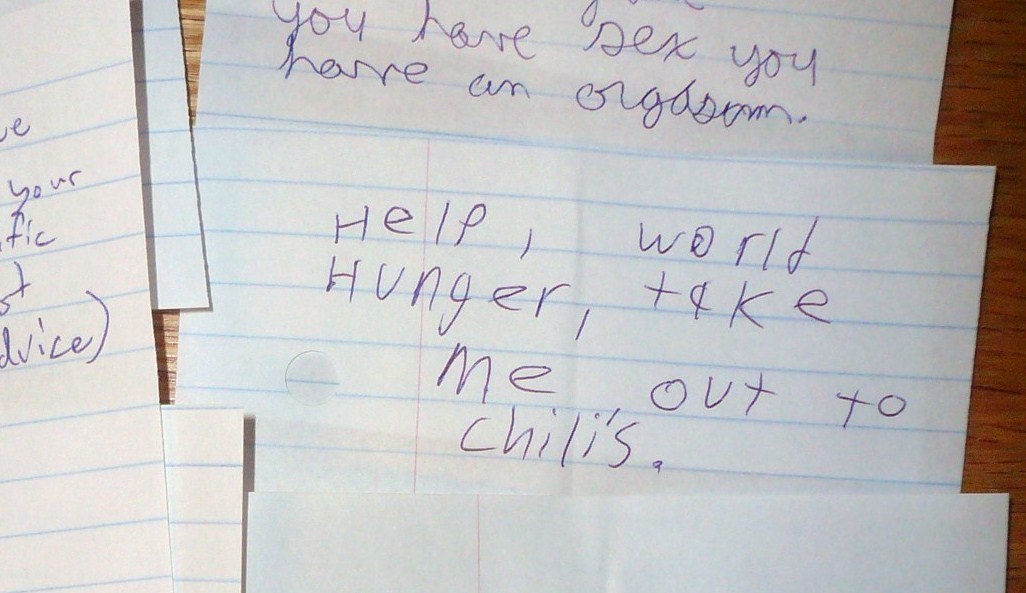 you have sex you
have an orgasom.
your
dvice)
Help, world
Hunger, take
me out to
chili's.